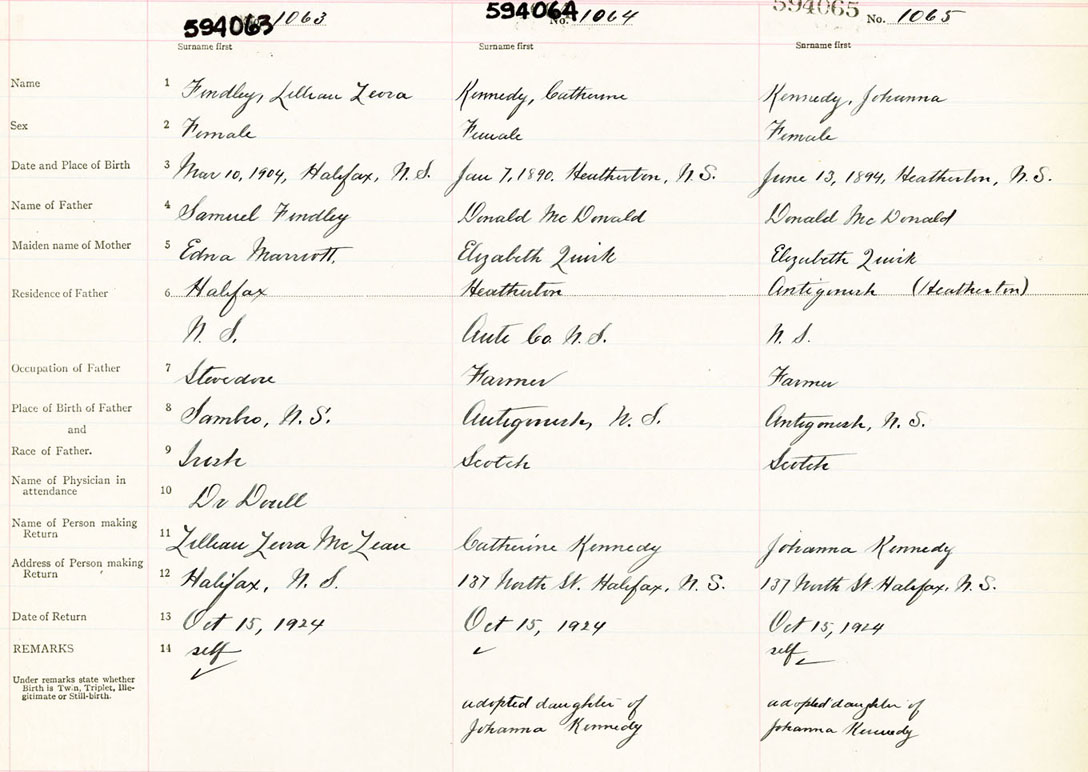 594063 1063
594064 No. 1064
594065 No. 1065
Surname first Surname first Surname first
Name 1 Findley, Lillian Leora Kennedy, Catherine Kennedy, Johanna
Sex 2 Female Female Female
Date and Place of Birth 3 Mar 10, 1904, Halifax, N.S. Jan 7, 1890. Heatherton, N.S. June 13, 1894, Heatherton, N.S.
Name of Father 4 Samuel Findley Donald McDonald Donald McDonald
Maiden name of Mother 5 Edna Marriott. Elizabeth Quirk Elizabeth Quirk
Residence of Father 6 Halifax Heatherton Antigonish (Heatherton)
N.S. Ante Co. N.S. N.S.
Occupation of Father 7 Stevedore Farmer Farmer
Place of Birth of Father 8 Sambro, N.S. Antigonish, N.S. Antigonish, N.S.
and
Race of Father. 9 Irish Scotch Scotch
Name of Physician in
attendance 10 Dr Doull
Name of Person making
Return 11 Lillian Leora McLean Catherine Kennedy Johanna Kennedy
Address of Person making
Return 12 Halifax, N.S. 137 North St. Halifax, N.S. 137 North St. Halifax, N.S.
Date of Return 13 Oct 15, 1924 Oct 15, 1924 Oct 15, 1924
REMARKS 14 self self
Under remarks state whether
Birth is Twin, Triplet, Ille-
gitimate or Still-birth.
adopted daughter of adopted daughter of
Johanna Kennedy Johanna Kennedy